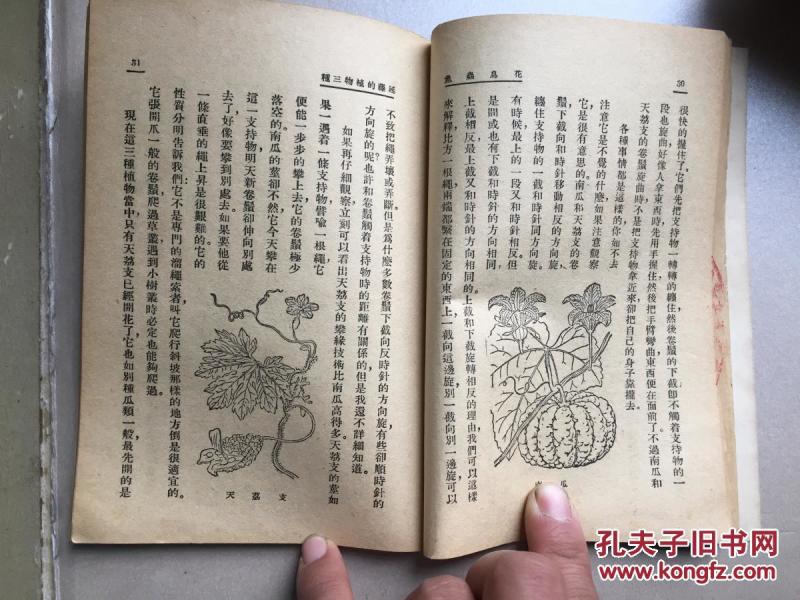 30
花鳥蟲魚
很快的攏住了。它們先把支持物一轉轉的纏住然後卷鬚的下截卽不觸着支持物的一
段也旋曲好像人拿東西時先用手握住然後把手臂彎曲東西便在面前了不過南瓜和
天荔支的卷鬚旋曲時不是把支持物拿近來卻把自己的身子靠攏去。
各種事情都是這樣的你如不去
注意它是不覺的什麼如果注意觀察
它是很有意思的南瓜和天荔支的卷
鬚下截向和時針移動相反的方向旋，
纏住支持物的一截和時針同方向旋。
有時候最上的一段又和時針相反。但
是間或也有下截和時針的方向相同，
上截相反最上截又和時針的方向相同的。上截和下截旋轉相反的理由，我們可以這樣
來解釋比方一根繩，兩端都緊在固定的東西上，一截向這邊旋，別一截向別一邊旋，可以
南瓜
述藤的植物三種
31
不致把繩弄壞或弄斷。但是爲什麼多數卷鬚下截向反時針的方向旋有些卻順時針的
方向旋的呢？也許和卷鬚觸着支持物時的距離有關係的，但是我還不詳細知道。
如果再仔細觀察，立刻可以看出天荔支的攀緣技術比南瓜高得多。天荔支的莖如
果一遇着一條支持物譬喻一根繩它
便能一步步的攀上去它的卷鬚極少
落空的南瓜的莖卻不然它今天攀在
這一支持物明天新卷鬚卻伸向別處
去了好像要攀到別處去。如果要他從
一條直垂的繩上昇是很艱難的。它的
性質分明告訴我們：它不是專門的溜繩索者叫它爬行斜坡那樣的地方倒是很適宜的。
它張開瓜一般的卷鬚爬過草叢，遇到小樹叢時必定也能夠爬過。
現在這三種植物當中，只有天荔支已經開花了，它也如別種瓜類一般，最先開的是
天荔支
孔夫子旧书网
www.kongfz.com